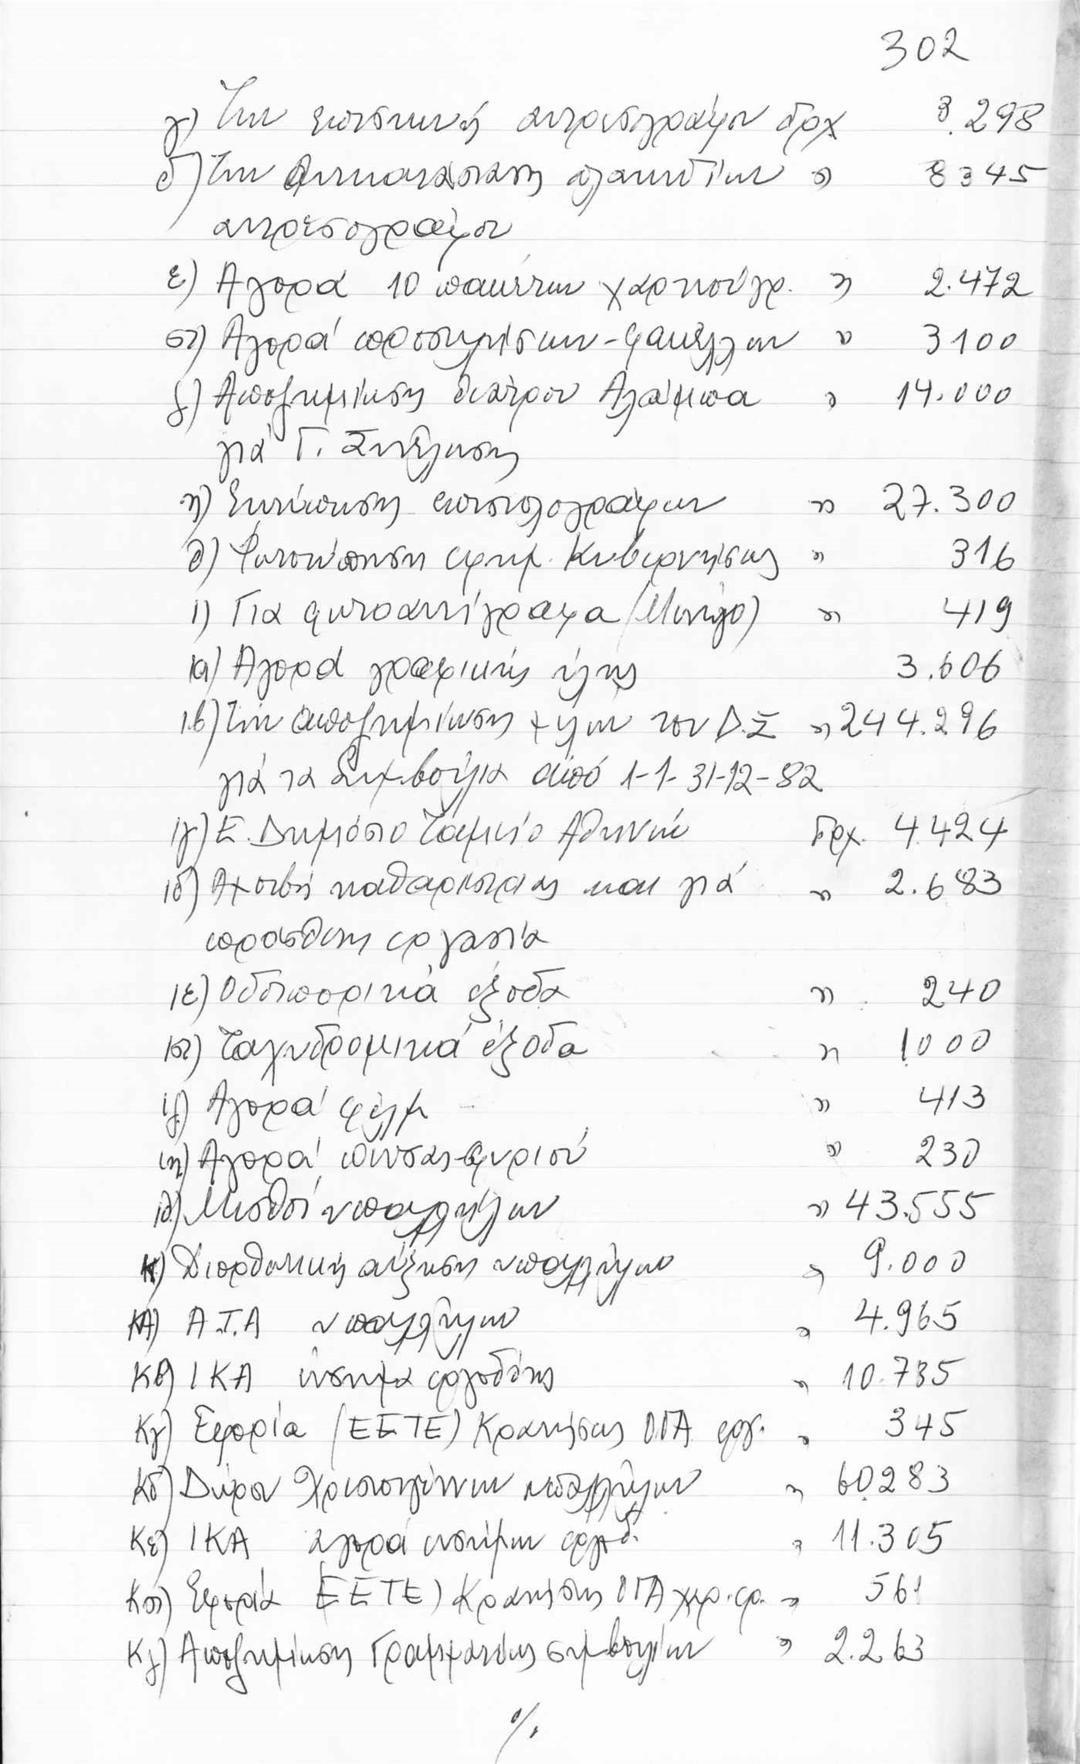 302
γ) Την επισκευή αντρεσογράφου δρχ 8.298
δ) Την αντικατάσταση πλακιδίων " 8345
αντρεσογράφου
ε) Αγορά 10 πακέττων χαρτιού γρ. " 2.472
στ) Αγορά προσκλήσεων - φακέλλων " 3100
ζ) Αποζημίωση θεάτρου Αλάμπρα " 14.000
γιά Γ. Συνέλευση
η) Εκτύπωση επιστολογράφων " 27.300
θ) Φωτοτύπηση εφημ. Κυβερνήσεως " 316
ι) Για φωτοαντίγραφα () " 419
ια) Αγορά γραφικής ύλης 3.606
ιβ) Την αποζημίωση μελών του Δ.Σ " 244.296
γιά τα Συμβούλια από 1-1-31-12-82
ιγ) Ε. Δημόσιο Ταμείο Αθηνών δρχ. 4.424
ιδ) Αμοιβή καθαρίστριας και γιά " 2.683
πρόσθετη εργασία
ιε) Οδοιπορικά έξοδα " 240
ιστ) Ταχυδρομικά έξοδα " 1000
ιζ) Αγορά φιλμ " 413
ιη) Αγορά " 230
ιθ) Μισθοί υπαλλήλων " 43.555
κ) Διορθωτική αύξηση υπαλλήλων " 9.000
ΚΑ) Α.Τ.Α υπαλλήλων " 4.965
Κβ) ΙΚΑ ένσημα εργοδότη " 10.785
Κγ) Εφορία (ΕΕΤΕ) Κρατήσεις ΟΓΑ εργ. " 345
Κδ) Δώρον Χριστουγέννων υπαλλήλων " 60283
Κε) ΙΚΑ αγορά ενσήμων εργοδ. " 11.305
Κστ) Εφορία (ΕΕΤΕ) Κρατήσεις ΟΓΑ χαρ. " 561
Κζ) Αποζημίωση Γραμματέως συμβουλίων " 2.263
%